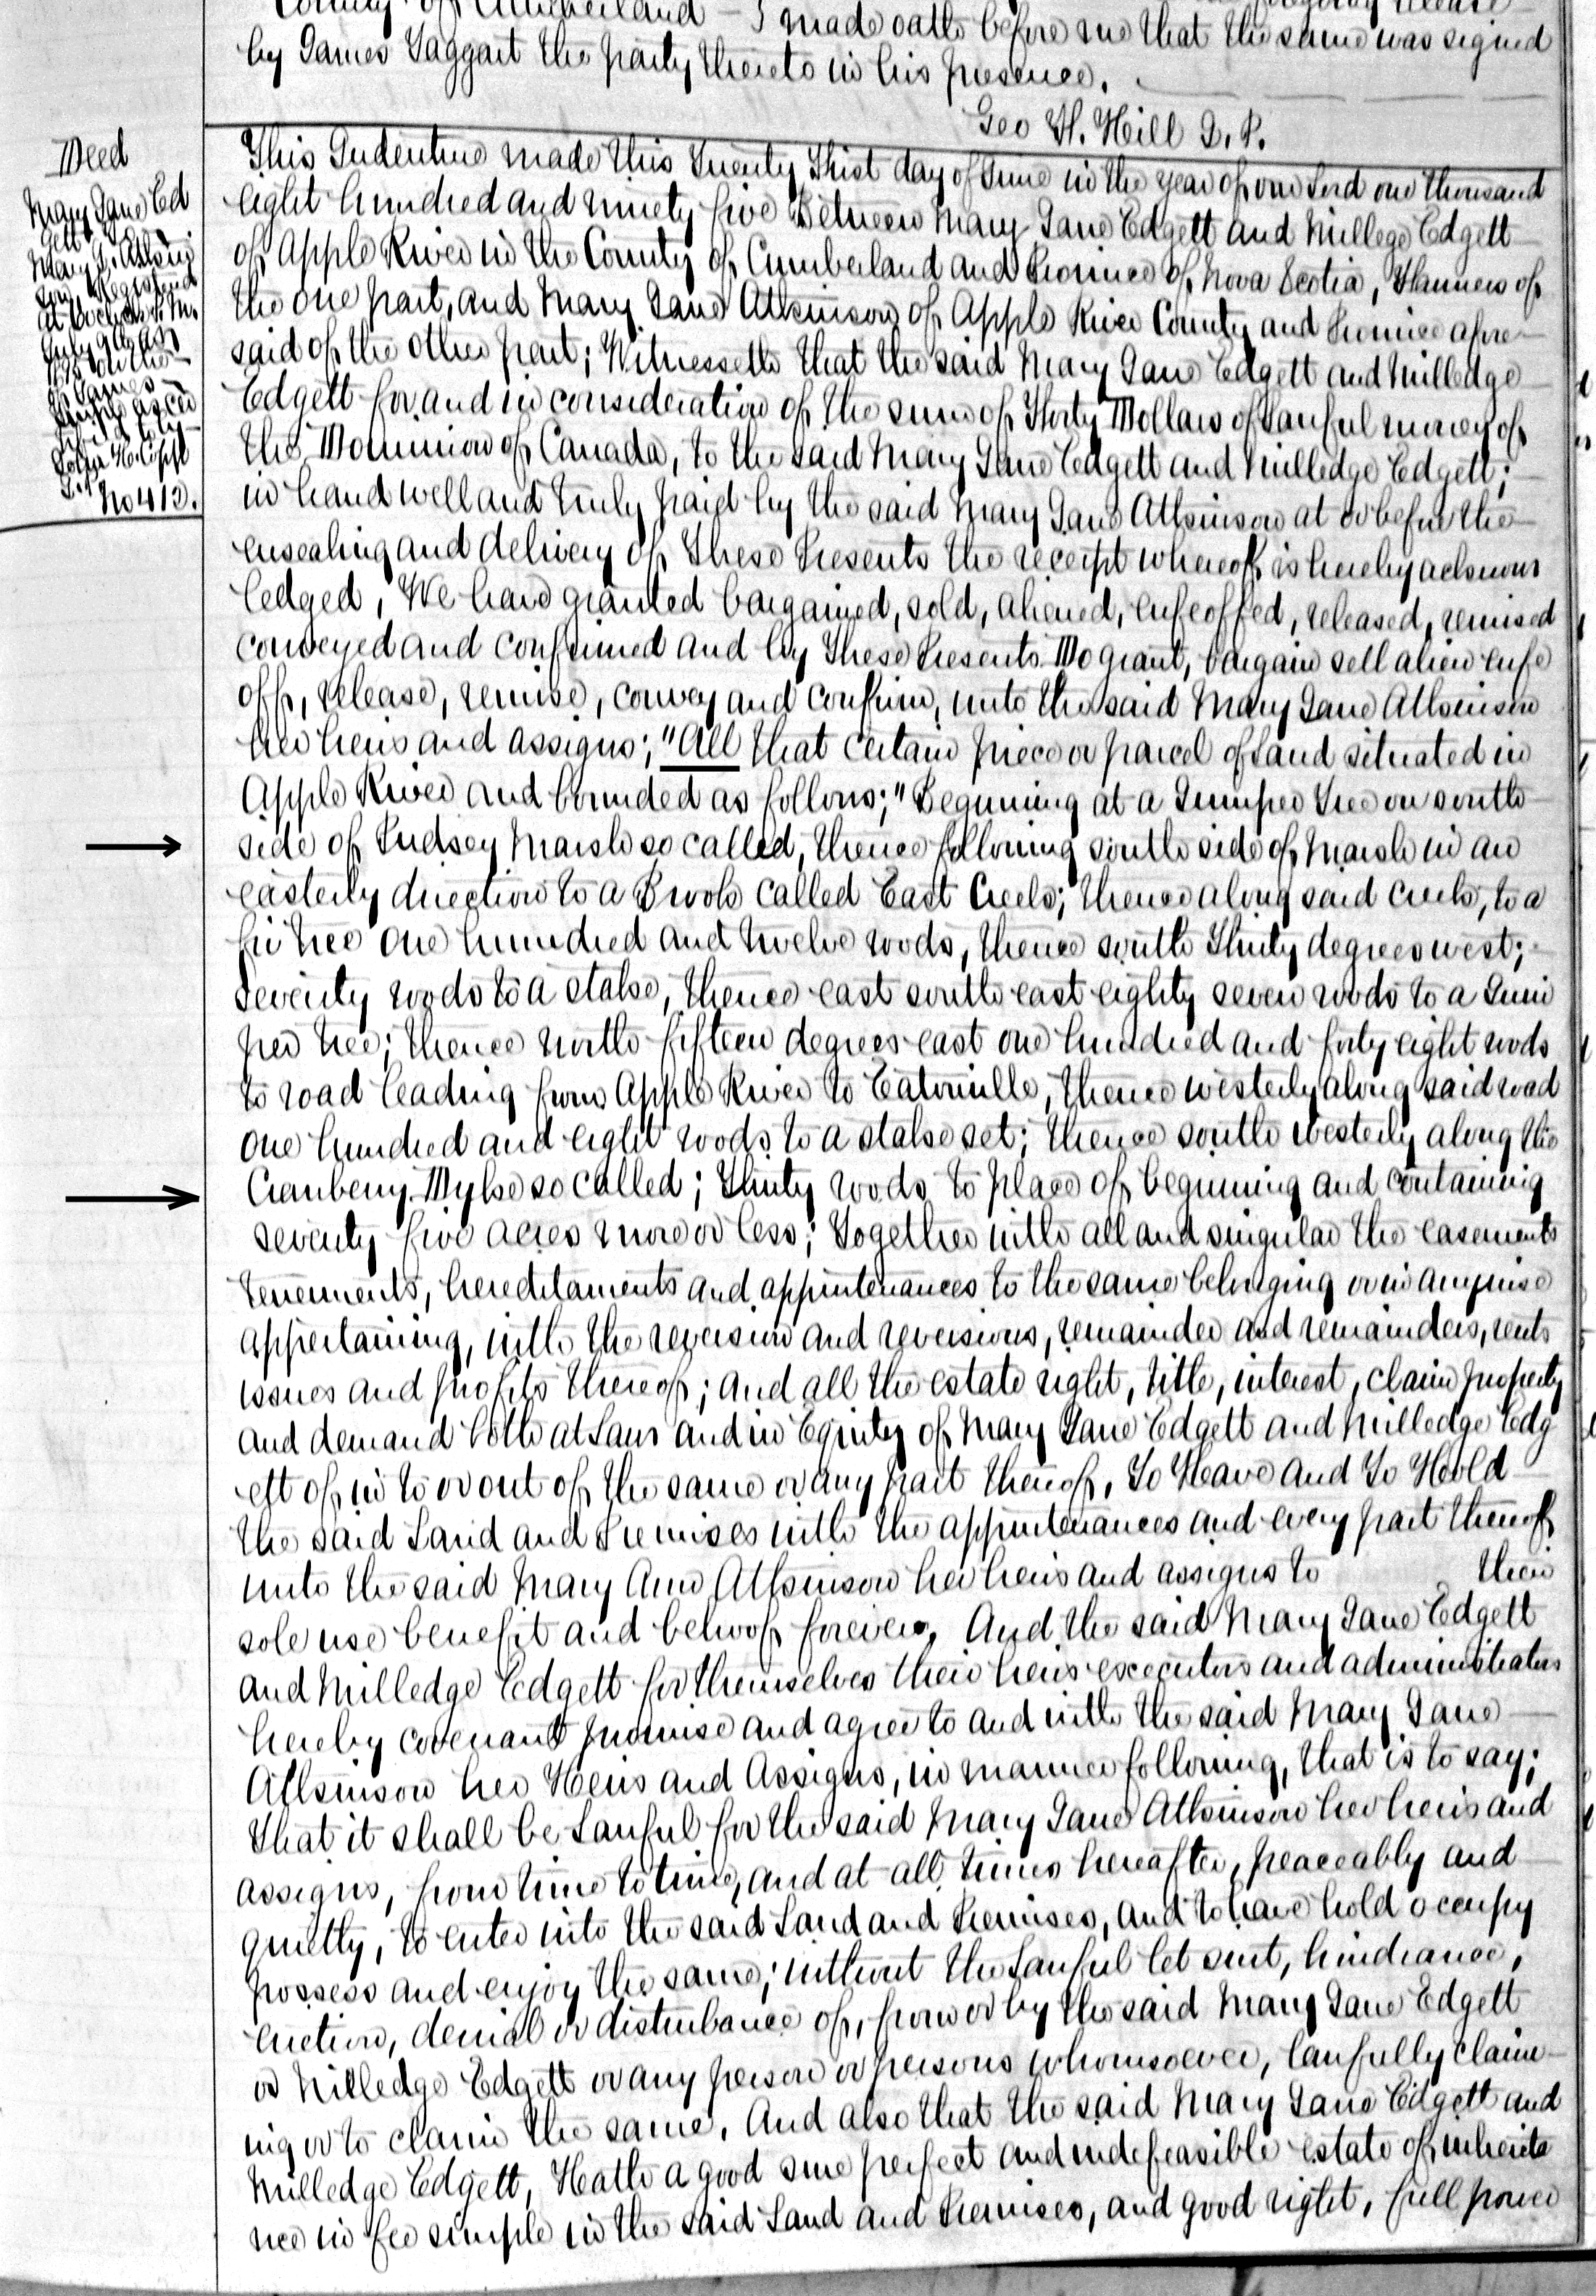 County of Cumberland
I made oath before me that the same was signed
by James Taggart the party thereto in his presence.
Geo H. Hill J. P.
Deed
Mary Jane Ed
gett
Mary J. Atkins
on Registered
at
July
1895 on the
of James
John H.
No 413.
This Indenture made this Twenty first day of June in the year of our Lord one thousand
eight hundred and ninety five Between Mary Jane Edgett and Millege Edgett
of Apple River in the County of Cumberland and Province of Nova Scotia, of
the one part, and Mary Jane Atkinson of Apple River County and Province afore
said of the other part; Witnesseth that the said Mary Jane Edgett and Milledge
Edgett for and in consideration of the sum of Dollars of Lawful money of
the Dominion of Canada, to the said Mary Jane Edgett and Milledge Edgett;
in hand well and truly paid by the said Mary Jane Atkinson at or before the
ensealing and delivery of These Presents the receipt whereof is hereby acknow
ledged, We have granted bargained, sold, aliened, enfeoffed, released, remised
conveyed and confirmed and by These Presents Do grant, bargain sell alien enfe
off, release, remise, convey and confirm, unto the said Mary Jane Atkinson
her heirs and assigns; "All that certain piece or parcel of Land situated in
Apple River and bounded as follows; "Beginning at a Juniper Tree on south
side of Pudsey Marsh so called, thence following south side of Marsh in an
easterly direction to a Brook called East Creek; thence along said creek, to a
fir tree one hundred and twelve roods, thence south Thirty degrees west;
seventy roods to a stake, thence east south east eighty seven roods to a Juni
per tree; thence north fifteen degrees east one hundred and forty eight roods
to road leading from Apple River to Eatonville, thence westerly along said road
one hundred and eight roods to a stake set; thence south westerly along the
Cranberry Dyke so called; Thirty roods to place of beginning and containing
seventy five acres more or less; Together with all and singular the easements
tenements, hereditaments and appurtenances to the same belonging or in anywise
appertaining, with the reversion and reversions, remainder and remainders, rents
issues and profits thereof; and all the estate right, title, interest, claim property
and demand both at Law and in Equity of Mary Jane Edgett and Milledge Edg
ett of in to or out of the same or any part thereof, To Have and To Hold
the said Land and Premises with the appurtenances and every part thereof
unto the said Mary Ann Atkinson her heirs and assigns to their
sole use benefit and behoof forever. And the said Mary Jane Edgett
and Milledge Edgett for themselves their heirs executors and administrators
hereby covenant promise and agree to and with the said Mary Jane
Atkinson her Heirs and Assigns, in manner following, that is to say;
That it shall be Lawful for the said Mary Jane Atkinson her heirs and
assigns, from time to time, and at all times hereafter, peaceably and
quietly, to enter into the said Land and Premises, and to have hold occupy
possess and enjoy the same; without the Lawful let suit, hindrance,
eviction, denial or disturbance of, from or by the said Mary Jane Edgett
or Milledge Edgett or any person or persons whomsoever, lawfully claim
ing or to claim the same. And also that the said Mary Jane Edgett and
Milledge Edgett, Hath a good sure perfect and indefeasible estate of inherita
nce in fee simple in the said Land and Premises, and good right, full power